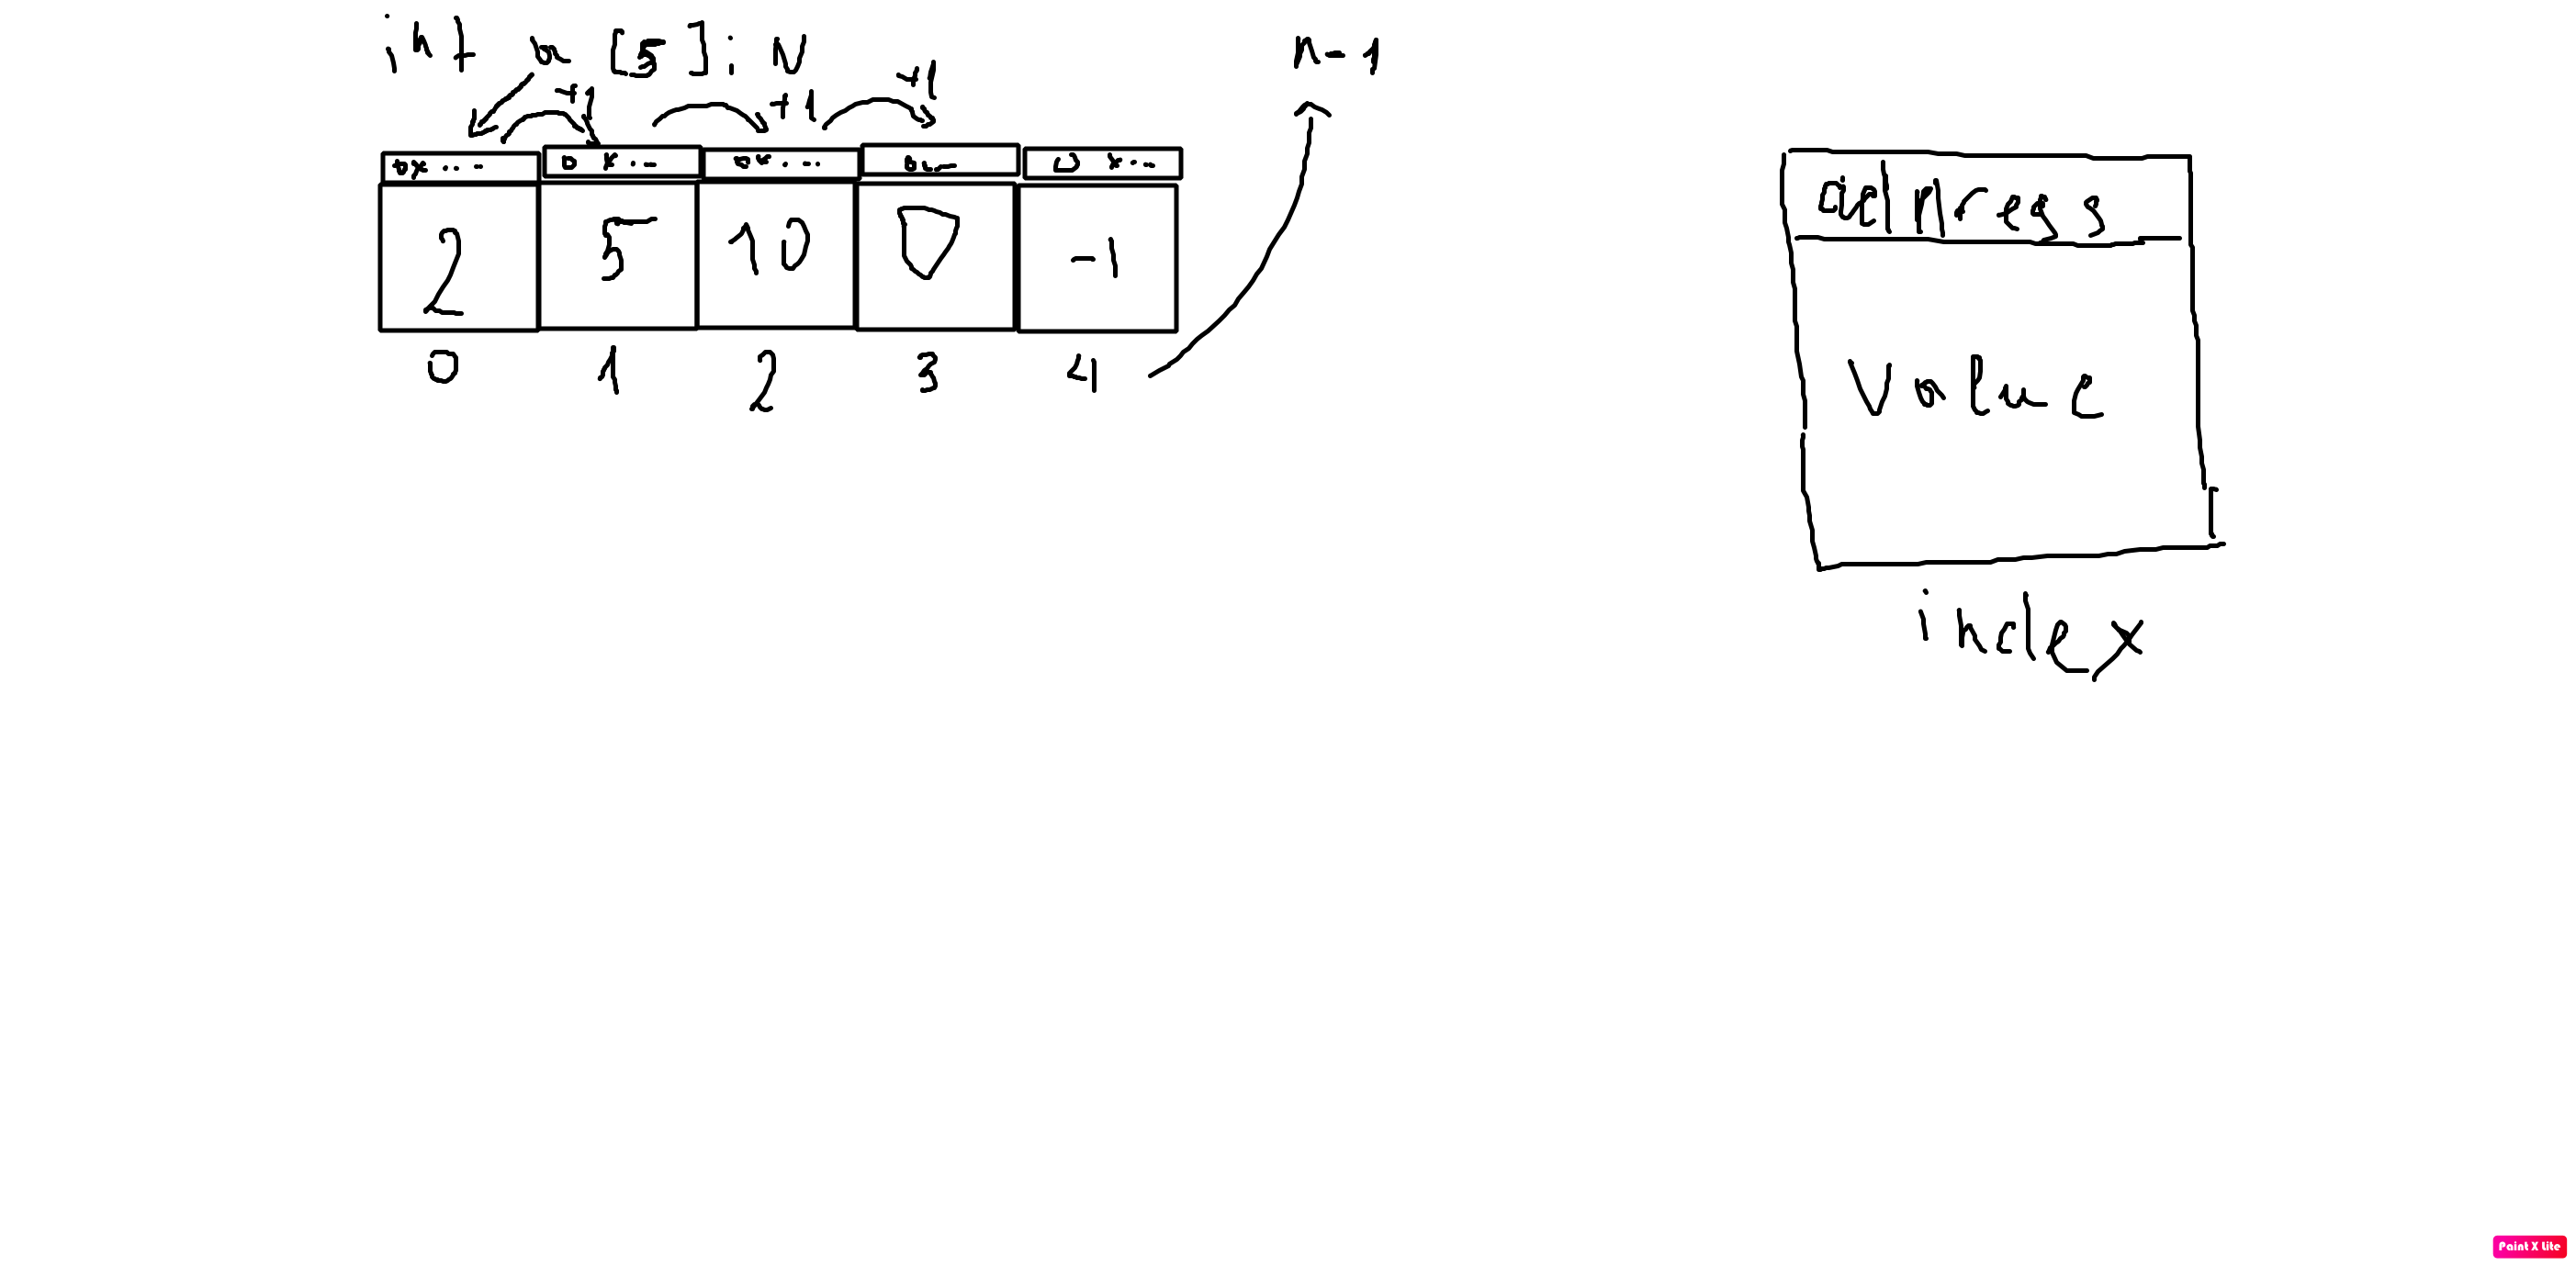 int a [5]; N
n-1
+1 +1 +1
0x... 0x... 0x... 0x...
2 5 10 0 -1
0 1 2 3 4
address
value
index
Paint X Lite